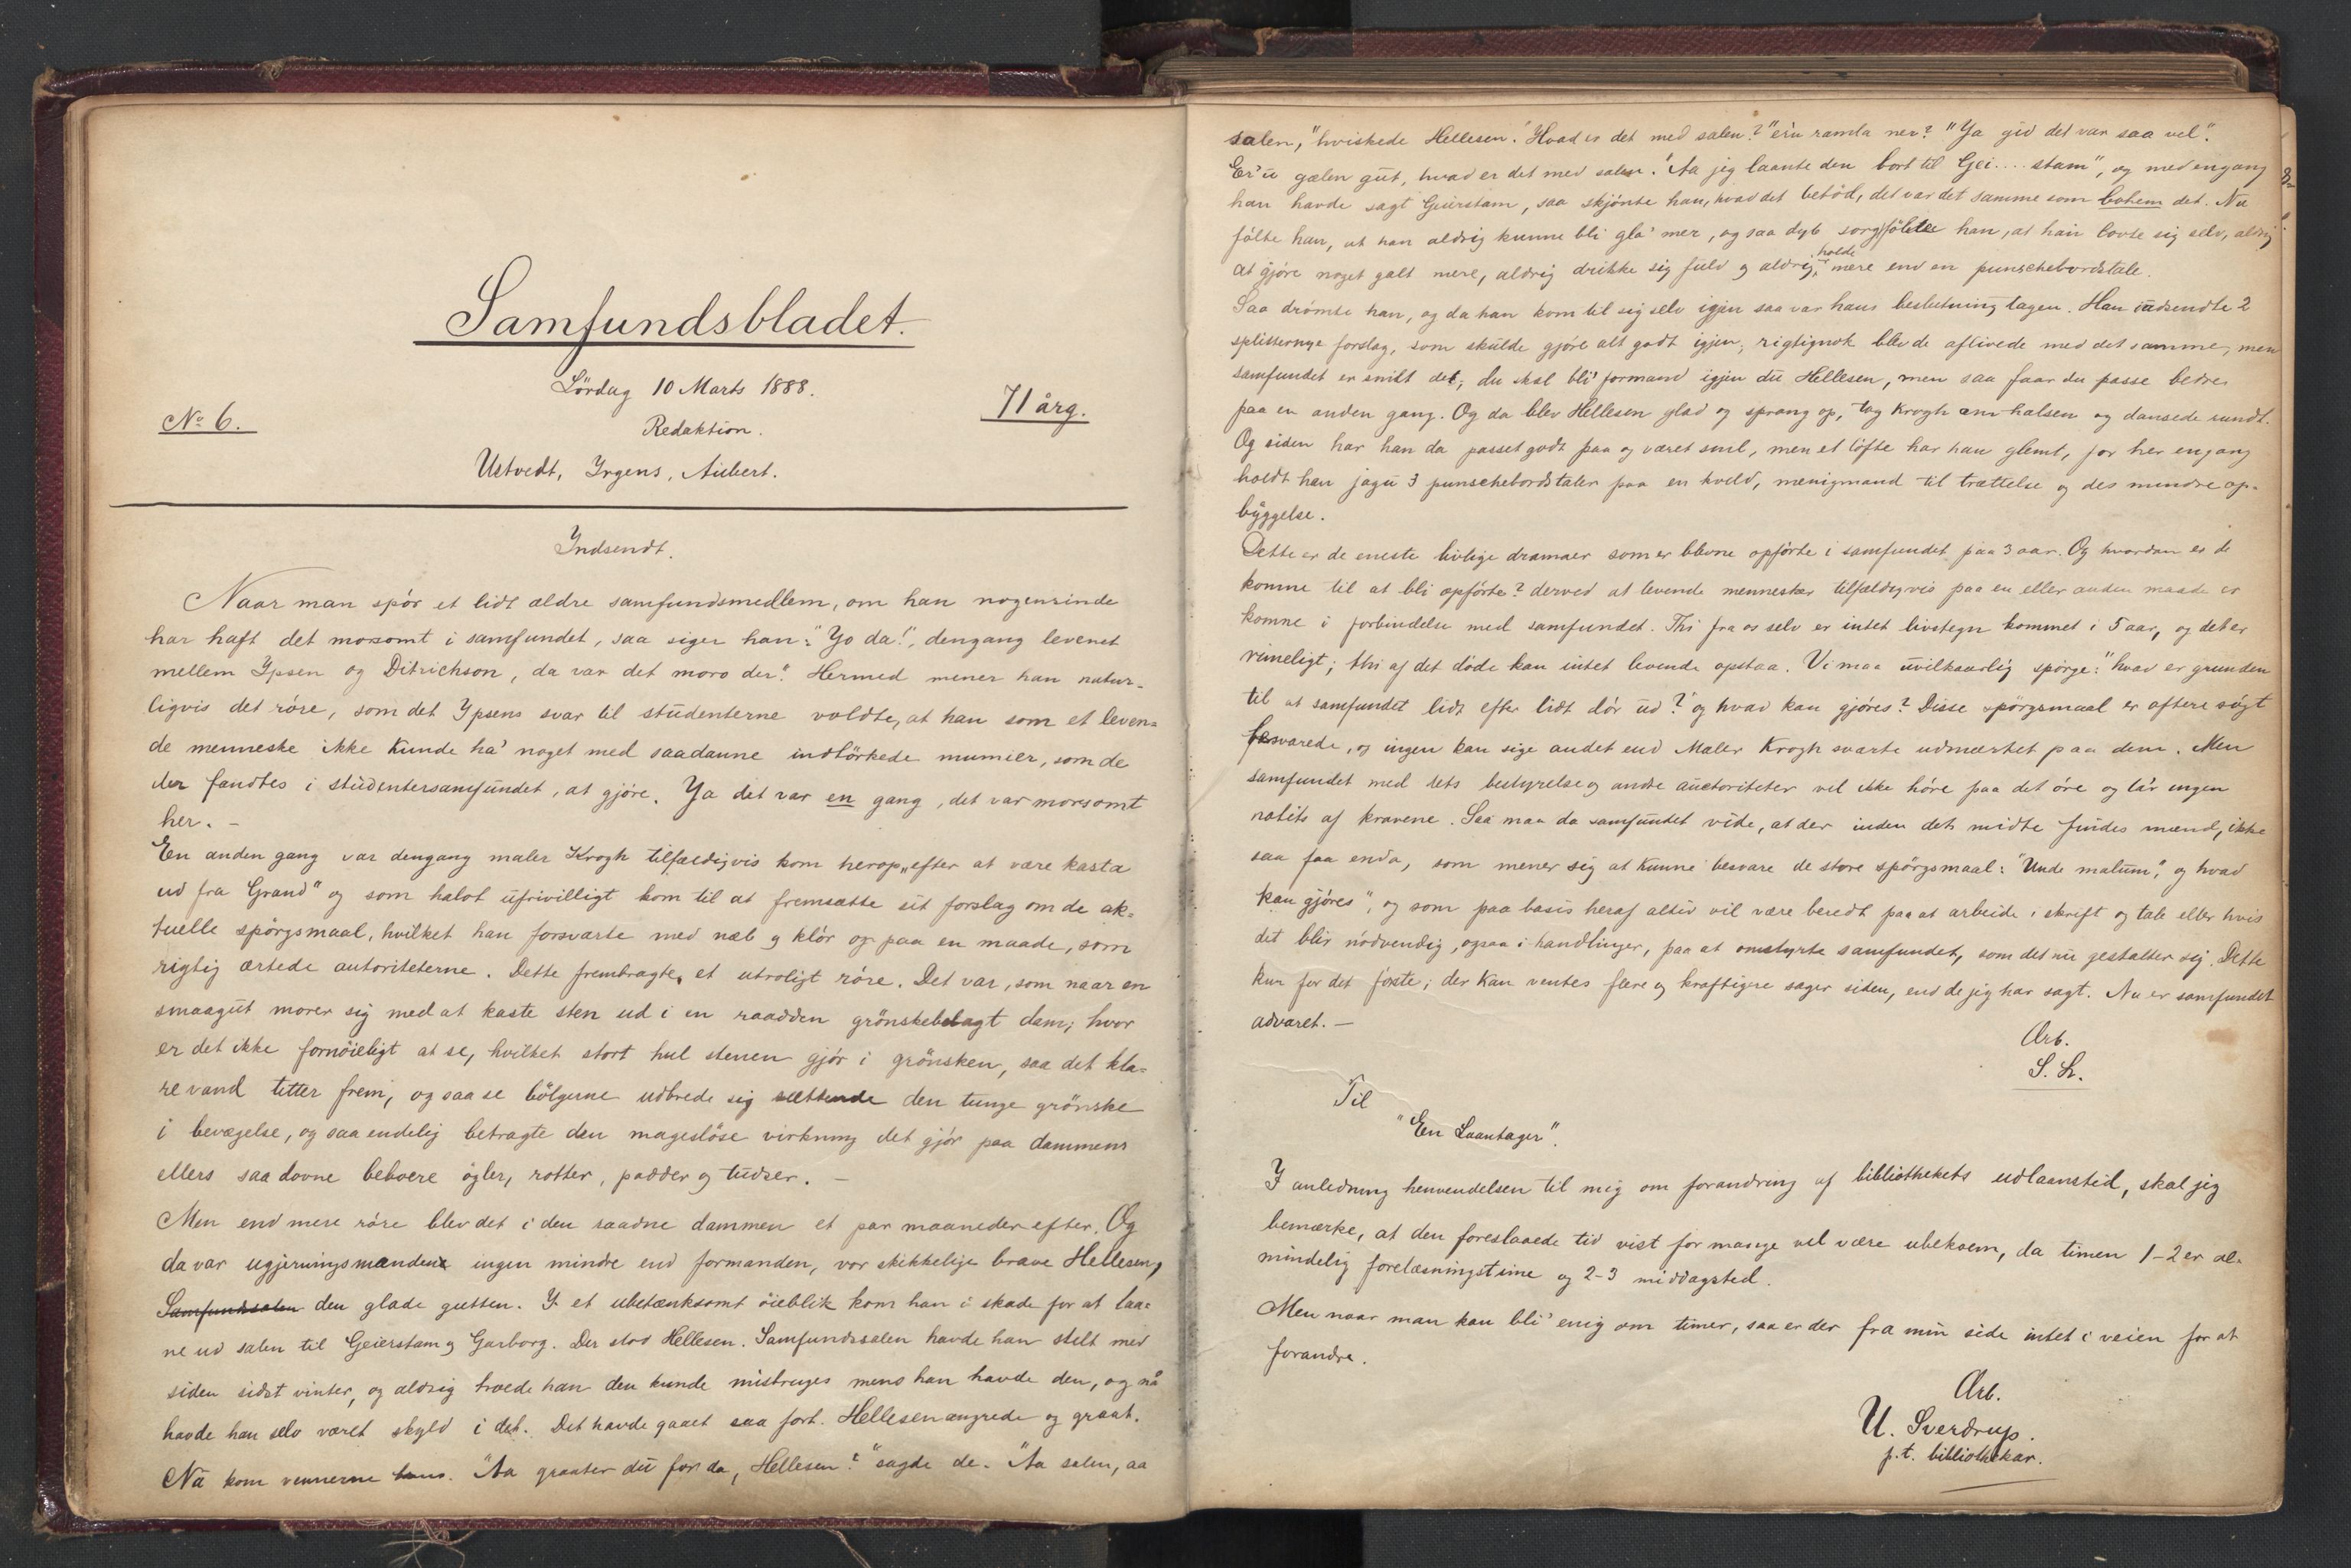 Samfundsbladet.
Lördag 10 Marts 1888.
No 6.
71 årg.
Redaktion.
Ustvedt, Yrgens, Aubert.
Indsendt.
Naar man spör et lidt ældre samfundsmedlem, om han nogensinde
har haft det morsomt i samfundet, saa siger han: "Yo da!", dengang levenet
mellem Ypsen og Ditrichson, da var det moro der." Hermed mener han natur-
ligvis det röre, som det Ypsens svar til studenterne voldte, at han som et leven-
de menneske ikke kunde ha' noget med saadanne indtörkede mumier, som de
der fandtes i studentersamfundet, at gjöre. Ya det var en gang, det var morsomt
her. –
En anden gang var dengang maler Krogh tilfældigvis kom herop "efter at være kasta
ud fra Grand" og som halvt ufrivilligt kom til at fremsætte sit forslag om de ak-
tuelle spörgsmaal, hvilket han forsvarte med næb og klör og paa en maade, som
rigtig ærtede autoriteterne. Dette frembragte et utroligt röre. Det var, som naar en
smaagut morer sig med at kaste sten ud i en raadden grönskebelagt dam; hvor
er det ikke fornöieligt at se, hvilket stort hul stenen gjör i grönsken, saa det kla-
re vand titter frem, og saa se bölgerne udbrede sig sættende den tunge grönske
i bevægelse, og saa endelig betragte den mageslöse virkning det gjör paa dammens
ellers saa dovne beboere ögler, rotter, padder og tudser. –
Men end mere röre blev det i den raadne dammen et par maaneder efter. Og
da var ugjerningsmanden ingen mindre end formanden, vor skikkelige brave Hellesen,
Samfundssalen den glade gutten. Y et ubetænksomt öieblik kom han i skade for at laa-
ne ud salen til Geierstam og Garborg. Der stod Hellesen. Samfundssalen havde han stelt med
siden sidst vinter, og aldrig troede han den kunde misbruges mens han havde den, og nå
havde han selv været skyld i det. Det havde gaaet saa fort. Hellesen angrede og graat.
Nå kom vennerne hans. "Aa graater du for da, Hellesen?" sagde de. "Aa salen, aa
salen," hviskede Hellesen. "Hvad er det med salen?" er'u ramla ner? "Ya gid det var saa vel".
Er'u gælen gut, hvad er det med salen. "Aa jeg laante den bort til Gei.... stam", og med engang
han havde sagt Geierstam, saa skjönte han, hvad det betöd, det var det samme som bohem det. Nu
fölte han, at han aldrig kunne bli gla' mer, og saa dyb sorg fölte han, at han lovte sig selv, aldrig
at gjöre noget galt mere, aldrig drikke sig fuld og aldrig holde mere end en punschebordstale.
Saa drömte han, og da han kom til sig selv igjen saa var hans beslutning tagen. Han indsendte 2
splitternye forslag, som skulde gjöre alt godt igjen, rigtignok blev de aflivede med det samme, men
samfundet er snilt det; du skal bli' formand igjen du Hellesen, men saa faar du passe bedre
paa en anden gang. Og da blev Hellesen glad og sprang op, tog Krogh om halsen og dansede rundt.
Og siden har han da passet godt paa og været snil, men et löfte har han glemt, for her engang
holdt han jagu 3 punschebordstaler paa en kveld, menigmand til trættelse og des mindre op-
byggelse.
Dette er de eneste livlige dramaer som er blevne opförte i samfundet paa 3 aar. Og hvordan er de
komne til at bli opförte? derved at levende mennesker tilfældigvis paa en eller anden maade er
komne i forbindelse med samfundet. Thi fra os selv er intet livstegn kommet i 5 aar, og det er
rimeligt; thi af det döde kan intet levende opstaa. Vi maa uvilkaarlig spörge: "hvad er grunden
til at samfundet lidt efter lidt dör ud?" og hvad kan gjöres? Disse spörgsmaal er oftere sögt
besvarede, og ingen kan sige andet end Maler Krogh svarte udmærket paa dem. Men
samfundet med dets bestyrelse og andre auctoriteter vil ikke höre paa det öre og ta'r ingen
notits af kravene. Saa maa da samfundet vide, at der inden dets midte findes mænd, ikke
saa faa enda, som mener sig at kunne besvare de store spörgsmaal: "Unde malum", og hvad
kan gjöres", og som paa basis heraf altid vil være beredt paa at arbeide i skrift og tale eller hvis
det blir nödvendig, ogsaa i handlinger, paa at omstyrte samfundet, som det nu gestalter sig. Dette
kun for det förste; der kan ventes flere og kraftigere sager siden, end de jeg har sagt. Nu er samfundet
advaret. –
Ærb.
S. L.
Til
"En Laantager".
I anledning henvendelsen til mig om forandring af bibliothekets udlaanstid, skal jeg
bemærke, at den foreslaaede tid vist for mange vil være ubekvem, da timen 1–2 er al-
mindelig forelæsningstime og 2–3 middagstid.
Men naar man kan bli' enig om timer, saa er der fra min side intet i veien for at
forandre.
Ærb.
U. Sverdrup.
p.t. bibliothekar.